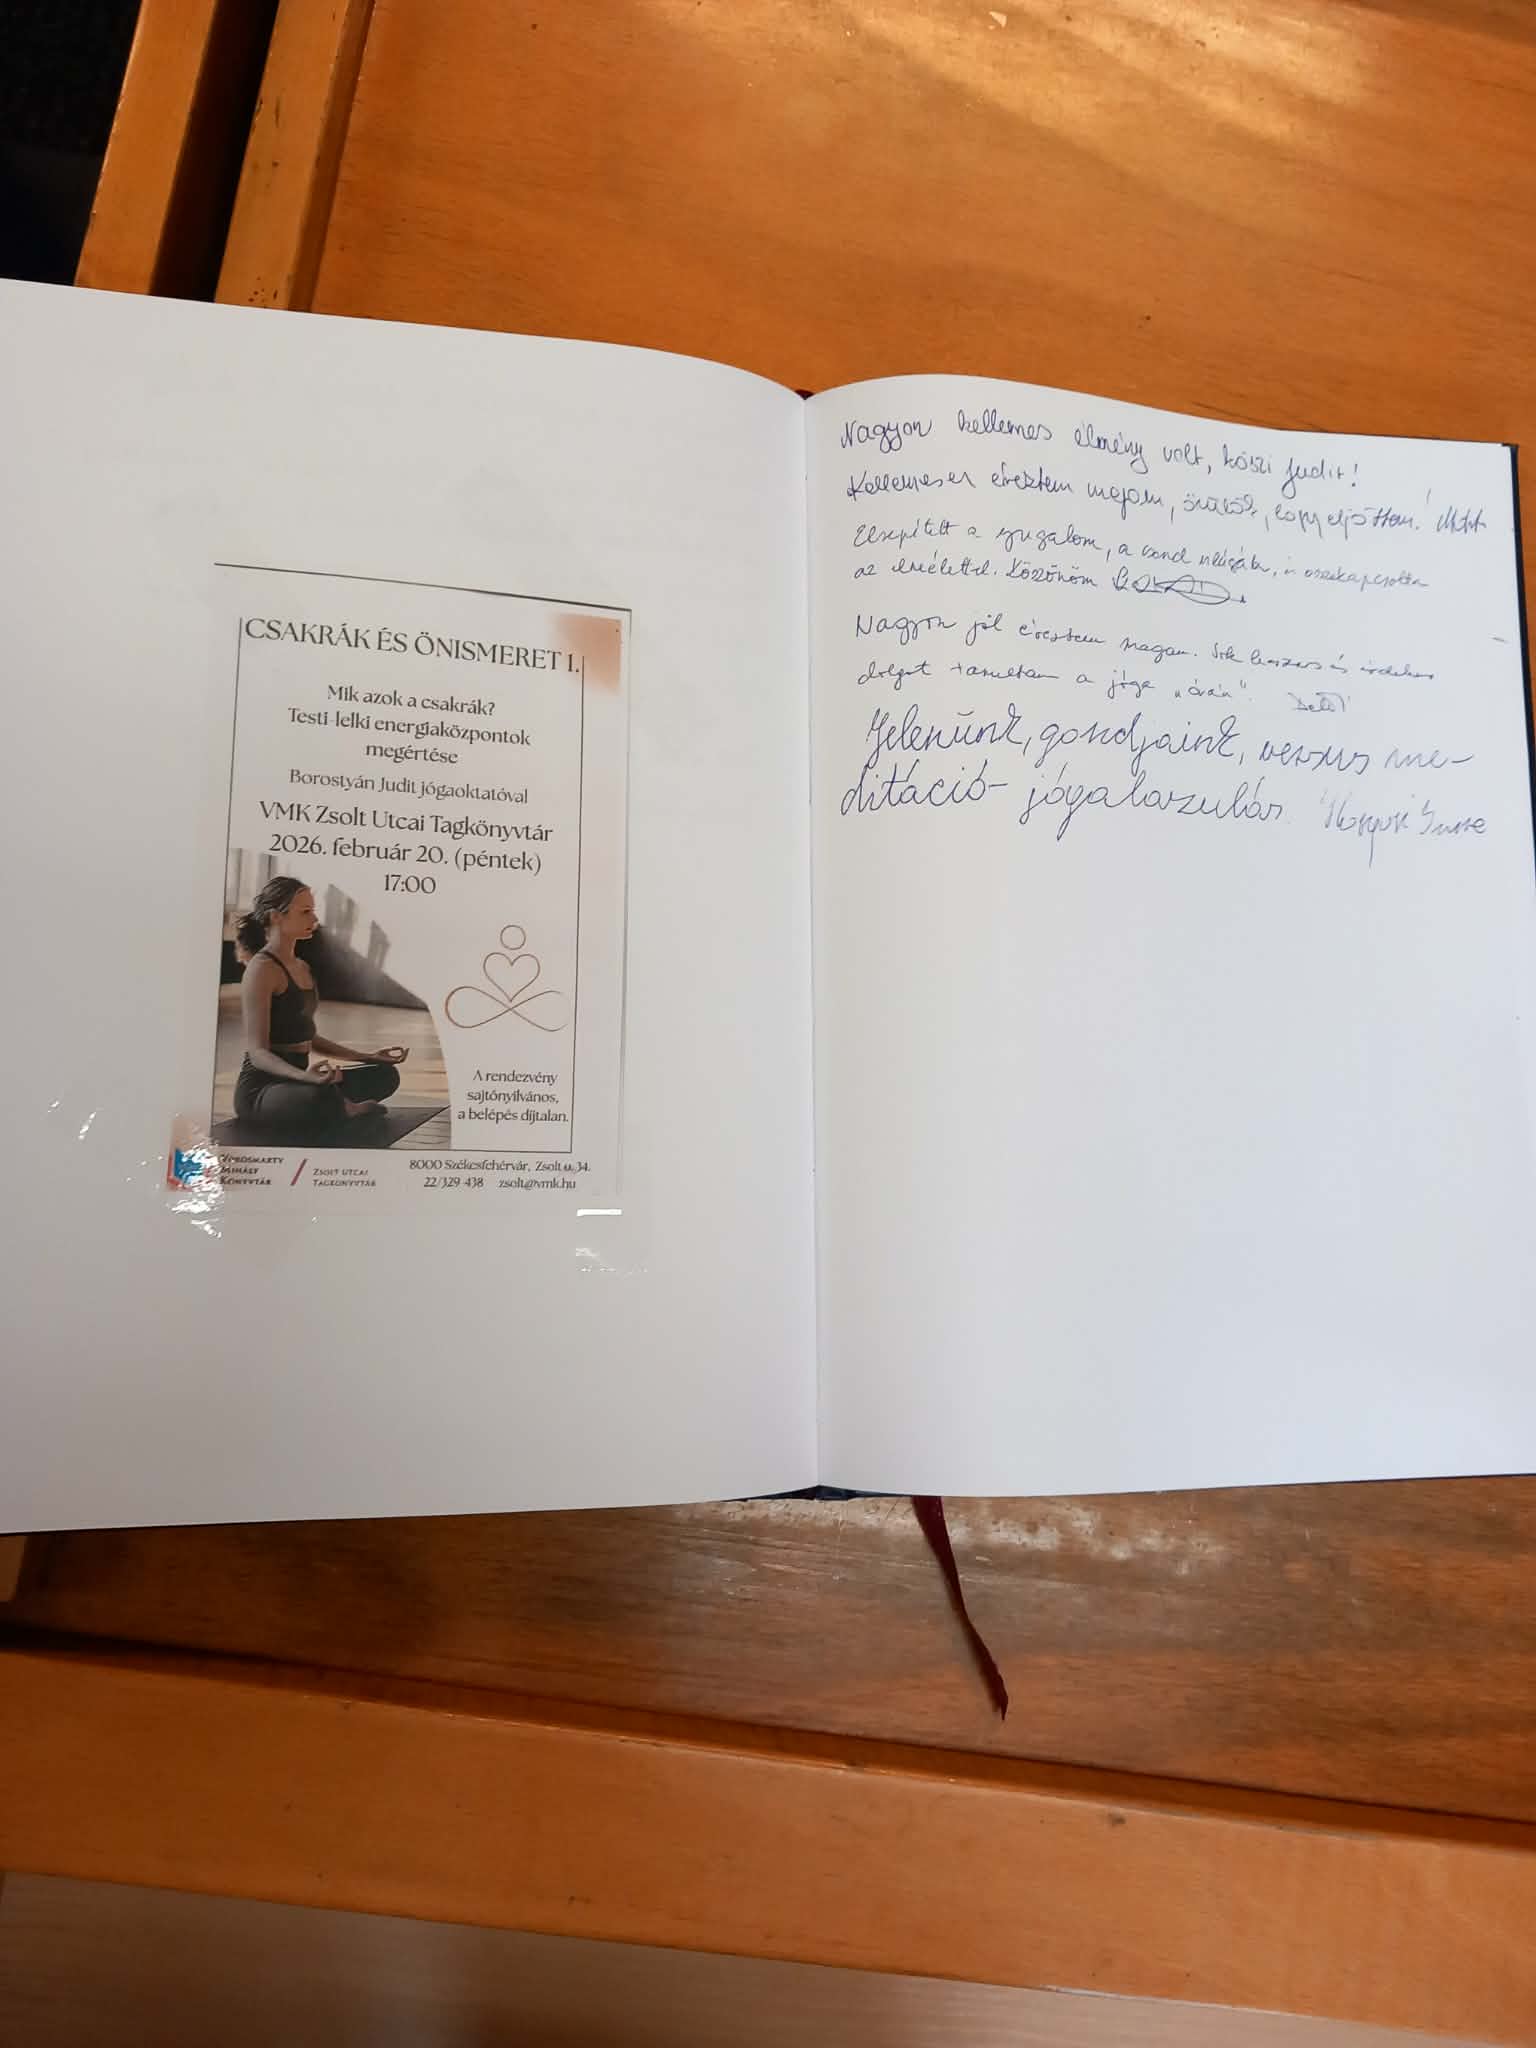 CSAKRÁK ÉS ÖNISMERET 1.
Mik azok a csakrák?
Testi-lelki energiaközpontok
megértése
Borostyán Judit jógaoktatóval
VMK Zsolt Utcai Tagkönyvtár
2026. február 20. (péntek)
17:00
A rendezvény
sajtónyilvános,
a belépés díjtalan.
VÖRÖSMARTY
MIHÁLY
KÖNYVTÁR
ZSOLT UTCAI
TAGKÖNYVTÁR
8000 Székesfehérvár, Zsolt u. 34.
22/329 438 zsolt@vmk.hu
Nagyon kellemes élmény volt, köszi Judit!
Kellemesen éreztem magam, örülök, hogy eljöttem!
a nyugalom, a
az elmélettel. Köszönöm
Nagyon jól éreztem magam. Sok hasznos és érdekes
dolgot tanultam a jóga „órán”.
Jelenünk, gondjaink, versus me-
ditáció- jógalazulás. Imre